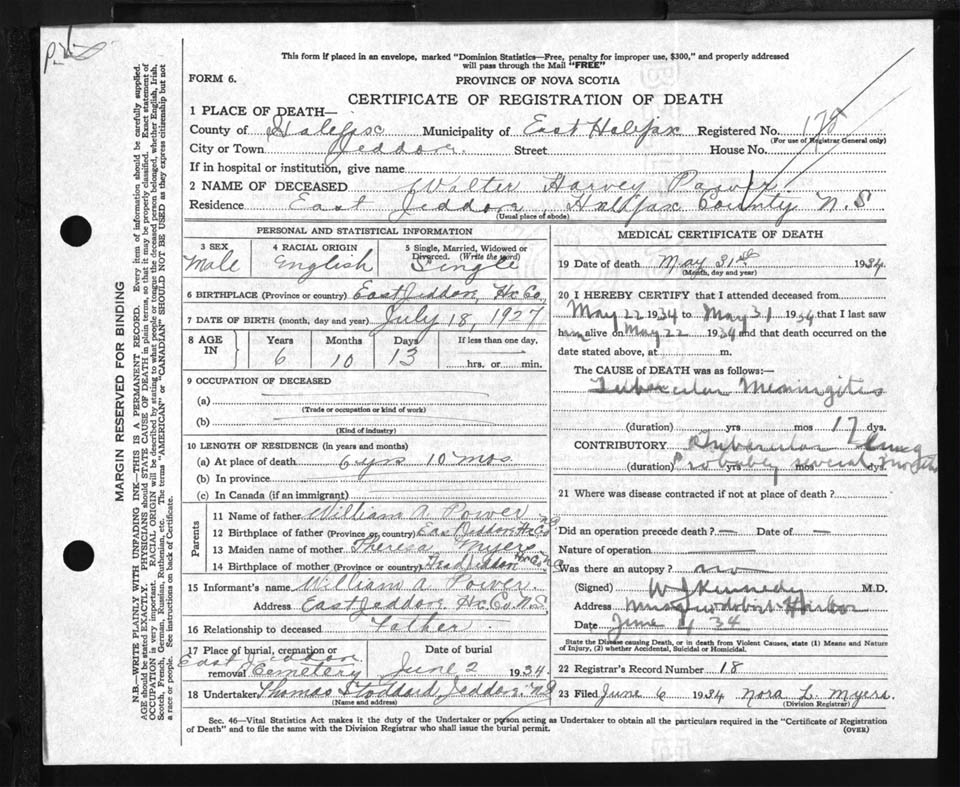 This form if placed in an envelope, marked "Dominion Statistics—Free, penalty for improper use, $300," and properly addressed
will pass through the Mail "FREE"
FORM 6.
PROVINCE OF NOVA SCOTIA
CERTIFICATE OF REGISTRATION OF DEATH
1 PLACE OF DEATH—
County of Halifax Municipality of East Halifax Registered No. 178
(For use of Registrar General only)
City or Town Jeddore Street House No.
If in hospital or institution, give name
2 NAME OF DECEASED Walter Harvey Power
Residence East Jeddore, Halifax County N.S
(Usual place of abode)
PERSONAL AND STATISTICAL INFORMATION
3 SEX 4 RACIAL ORIGIN 5 Single, Married, Widowed or
Divorced. (Write the word)
Male English Single
6 BIRTHPLACE (Province or country) East Jeddore, Hx Co.
7 DATE OF BIRTH (month, day and year) July 18, 1927
8 AGE IN Years Months Days If less than one day.
6 10 13 hrs. or min.
9 OCCUPATION OF DECEASED
(a)
(Trade or occupation or kind of work)
(b)
(Kind of industry)
10 LENGTH OF RESIDENCE (in years and months)
(a) At place of death 6 yrs 10 mos.
(b) In province
(c) In Canada (if an immigrant)
Parents
11 Name of father William A Power
12 Birthplace of father (Province or country) East Jeddore Hx Co N.S
13 Maiden name of mother Theresa Myers
14 Birthplace of mother (Province or country) Head Jeddore Hx Co N.S
15 Informant's name William A Power
Address East Jeddore Hx Co N.S.
16 Relationship to deceased Father
17 Place of burial, cremation or removal East Jeddore Cemetery Date of burial June 2 1934
18 Undertaker Thomas Stoddard, Jeddore, N.S
(Name and address)
MEDICAL CERTIFICATE OF DEATH
19 Date of death May 31st 1934
(Month, day and year)
20 I HEREBY CERTIFY that I attended deceased from
May 22 1934 to May 31 1934 that I last saw
him alive on May 22 1934 and that death occurred on the
date stated above, at m.
The CAUSE OF DEATH was as follows:—
Tubercular Meningitis
(duration) yrs mos 17 dys.
CONTRIBUTORY Tubercular Lung
(duration) Probably yrs several mos months dys.
21 Where was disease contracted if not at place of death?
Did an operation precede death? — Date of —
Nature of operation
Was there an autopsy? no
(Signed) W J Kennedy M.D.
Address Musquodoboit Harbor
Date June 34
State the Disease causing Death, or in death from Violent Causes, state (1) Means and Nature
of Injury, (2) whether Accidental, Suicidal or Homicidal.
22 Registrar's Record Number 18
23 Filed June 6 1934 Nora L. Myers.
(Division Registrar)
Sec. 46—Vital Statistics Act makes it the duty of the Undertaker or person acting as Undertaker to obtain all the particulars required in the "Certificate of Registration
of Death" and to file the same with the Division Registrar who shall issue the burial permit. (OVER)
MARGIN RESERVED FOR BINDING
N.B.—WRITE PLAINLY WITH UNFADING INK—THIS IS A PERMANENT RECORD. Every item of information should be carefully supplied.
AGE should be stated EXACTLY. PHYSICIANS should STATE CAUSE OF DEATH in plain terms, so that it may be properly classified. Exact statement of
OCCUPATION is very important. RACIAL ORIGIN will be described by stating to what people or tongue the deceased person belonged, whether English, Irish,
Scotch, French, German, Russian, Ruthenian, etc. The terms "AMERICAN" or "CANADIAN" SHOULD NOT BE USED as they express citizenship but not
a race or people. See instructions on back of Certificate.